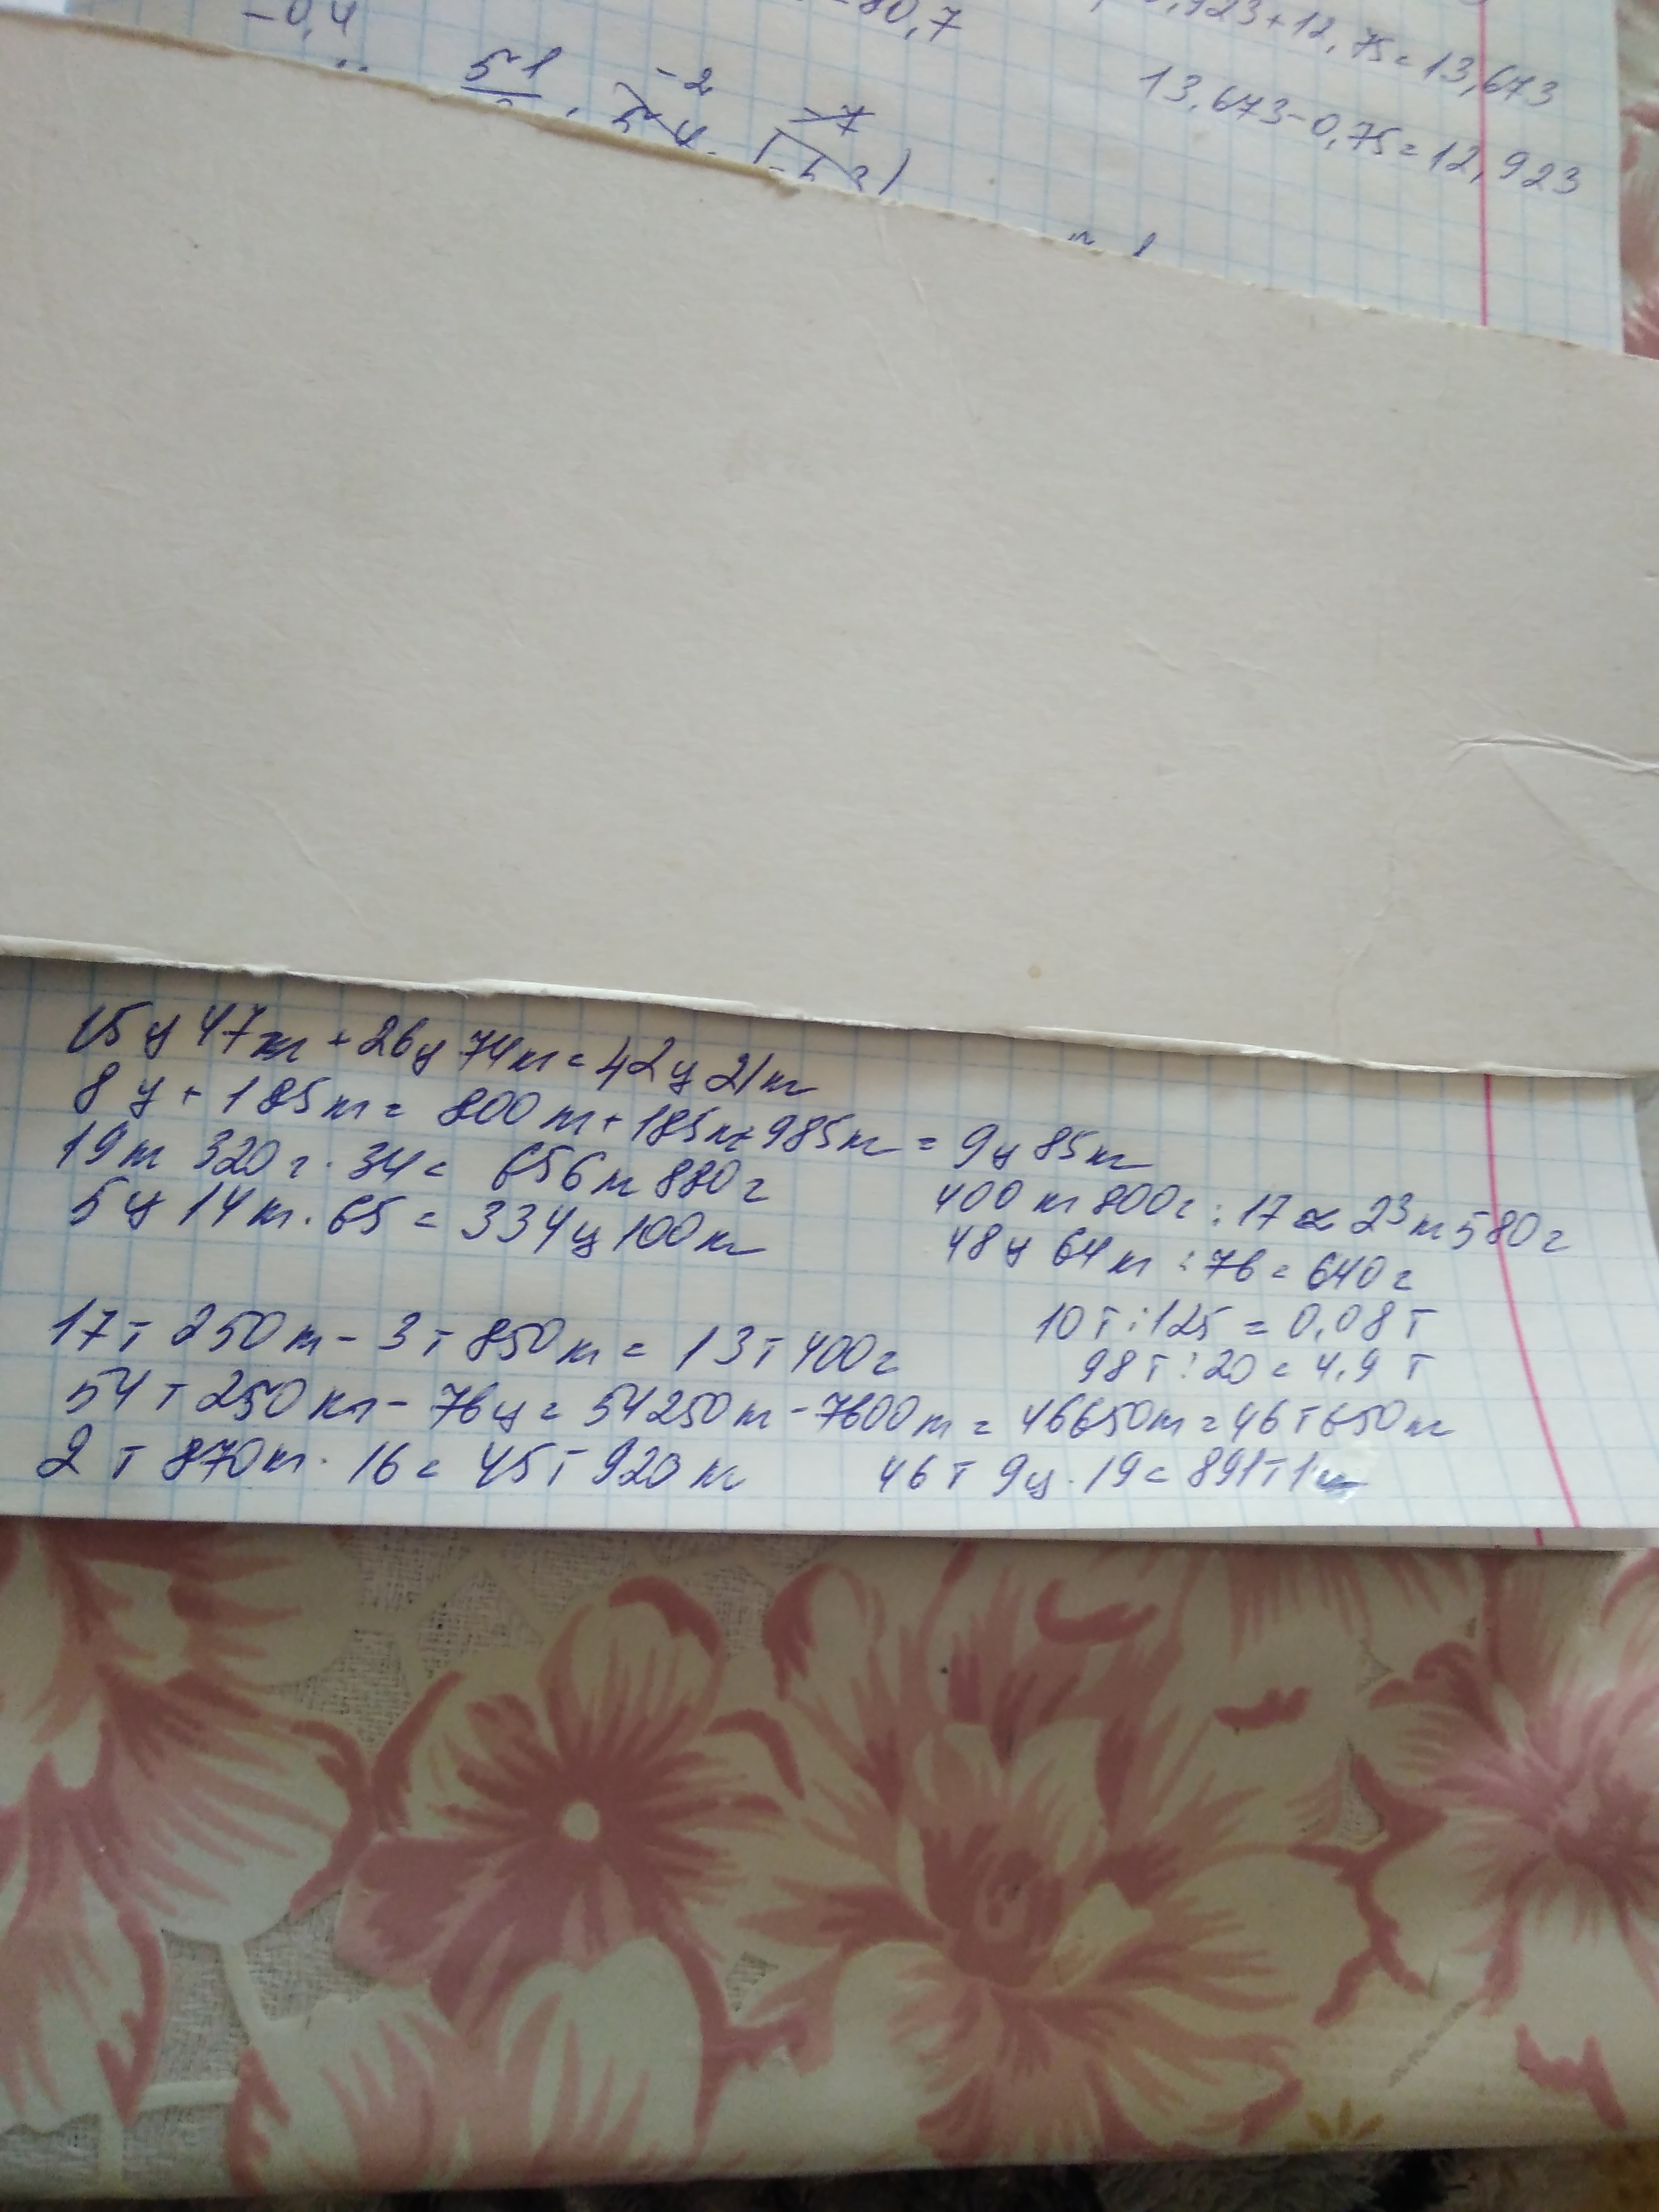 -0,4
-80,7
,923+12,75=13,673
13,673-0,75=12,923
51
-2
-7
15ц 47кг+26ц 74кг=42ц 21кг
8ц+185кг=800кг+185кг=985кг=9ц 85кг
19кг 320г·34=656кг 880г
400кг 800г:17≈23кг 580г
5ц 14кг·65=334ц 100кг
48ц 64кг:76=640г
10т:125=0,08т
17т 250кг-3т 850кг=13т 400г
98т:20=4,9т
54т 250кг-76ц=54250кг-7600кг=46650кг=46т 650кг
2т 870кг·16=45т 920кг
46т 9ц·19=891т 1ц